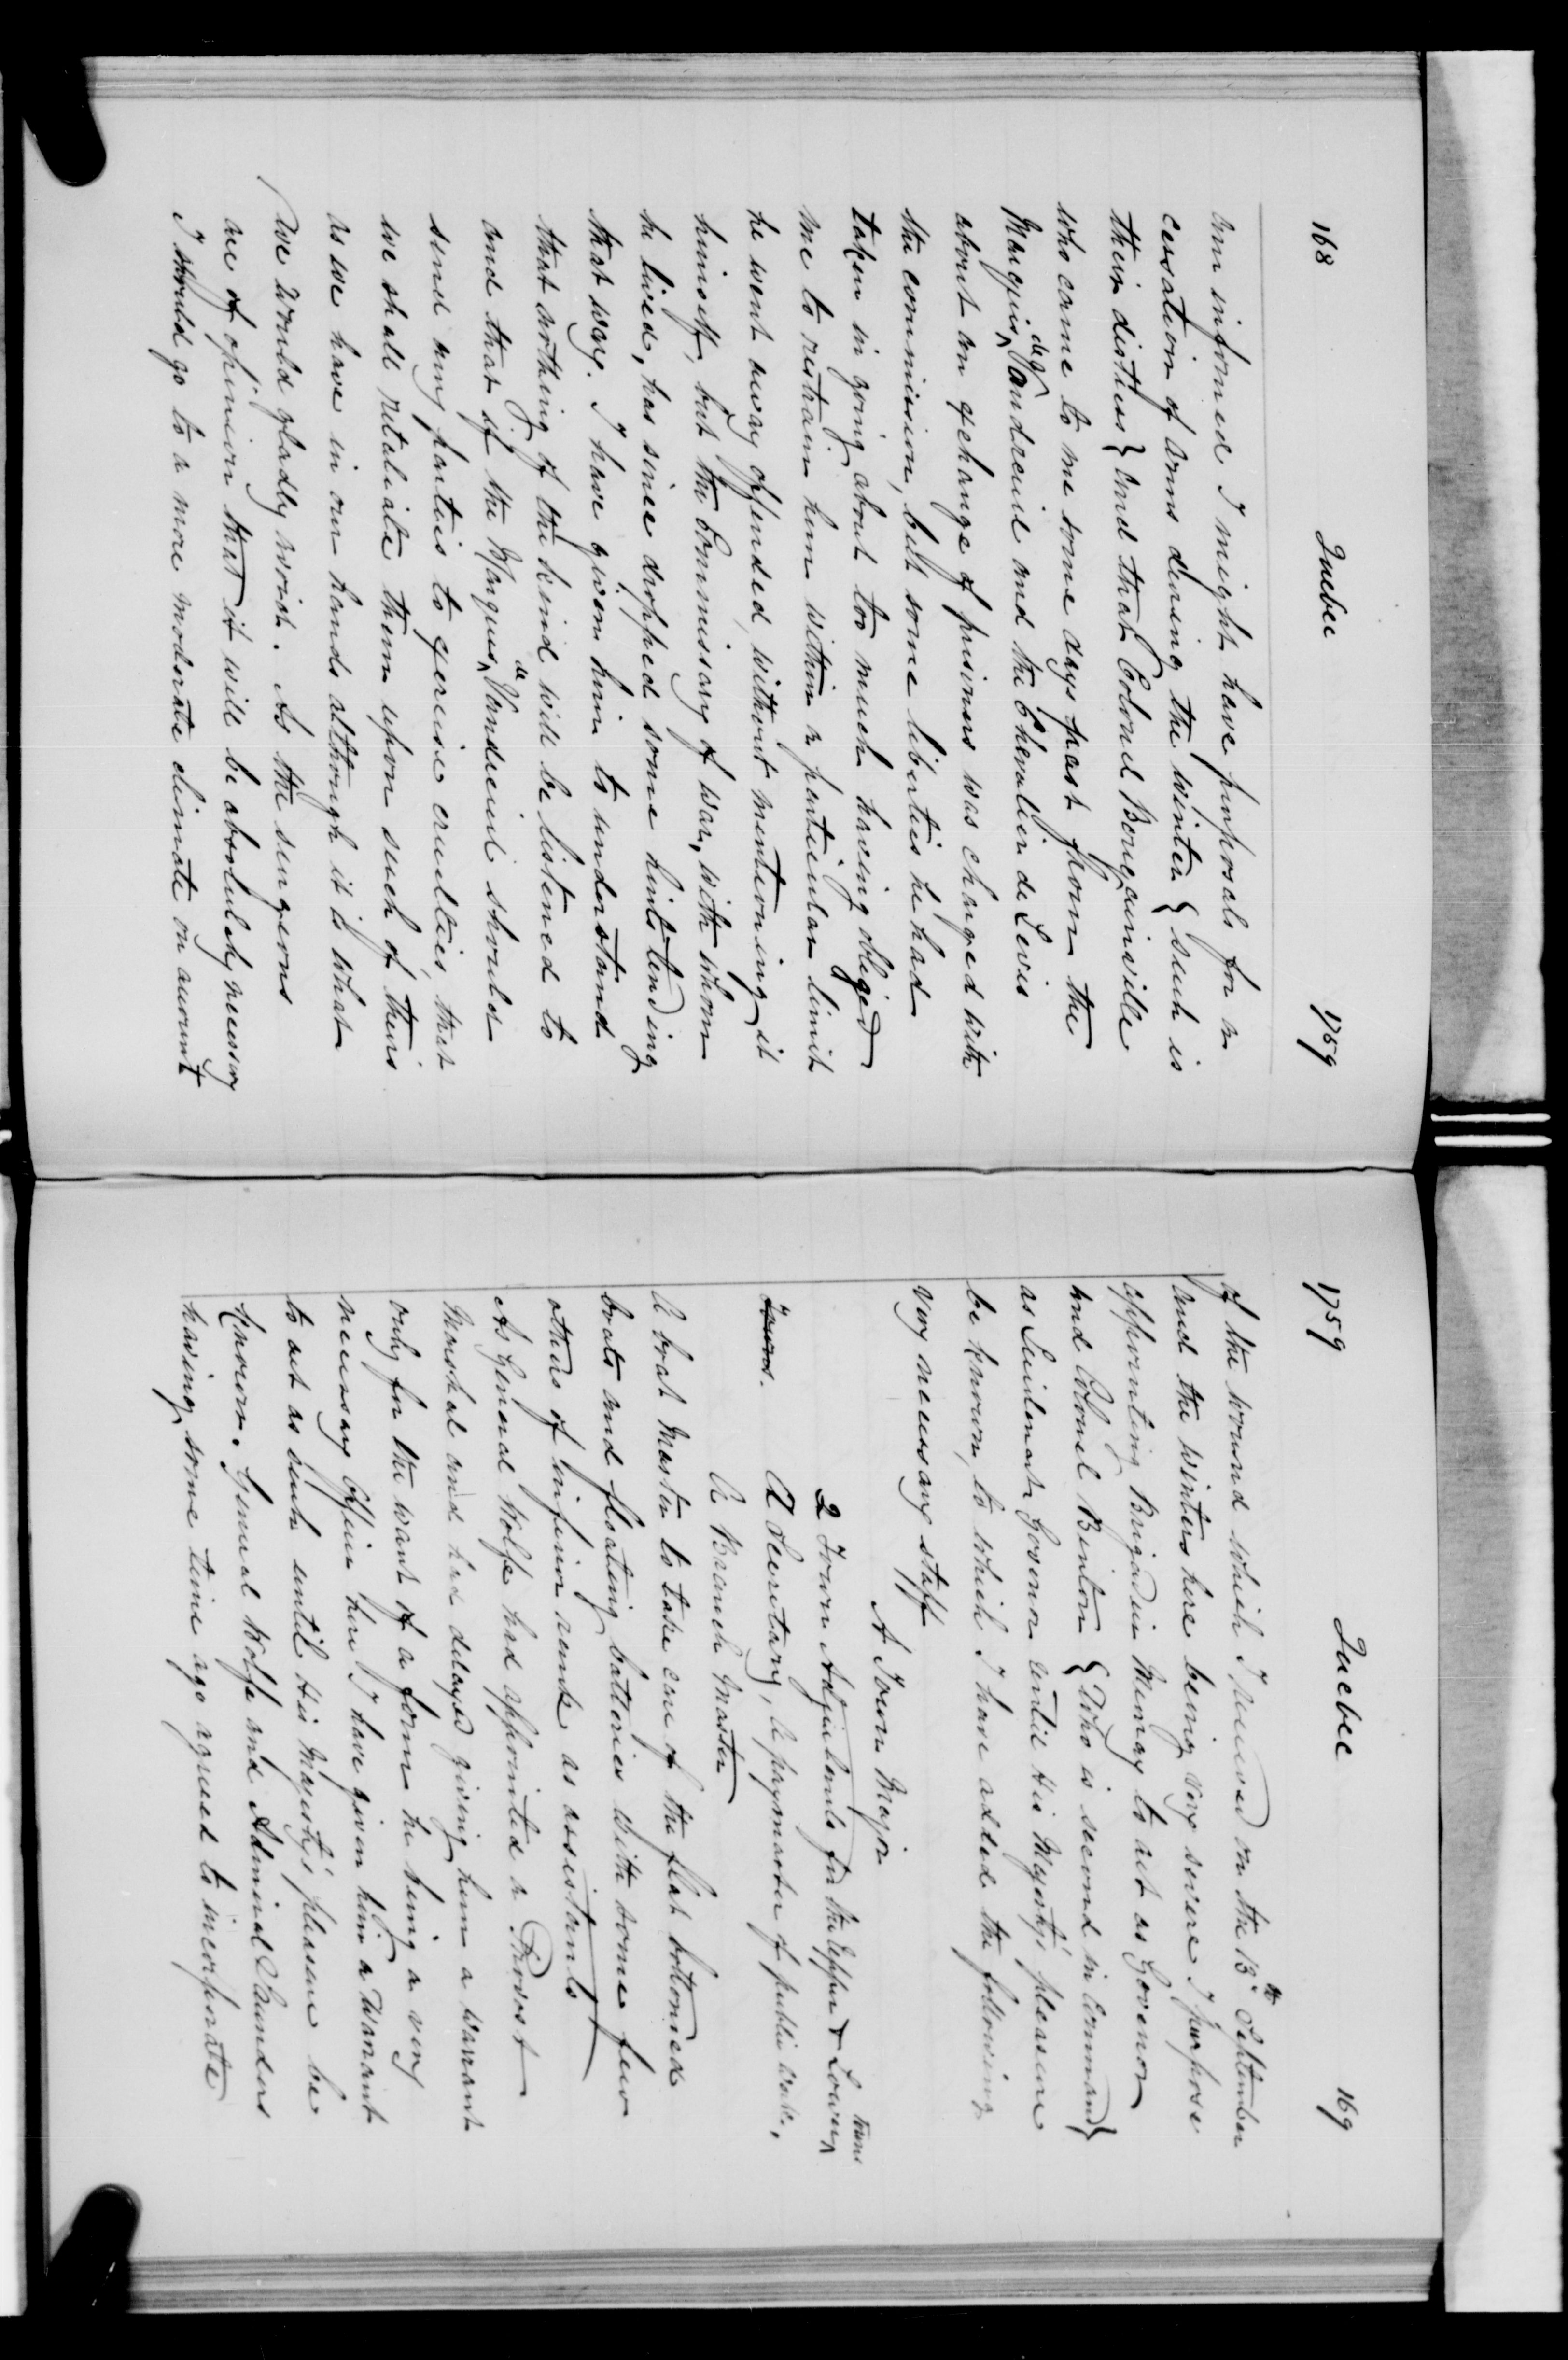 168 Quebec 1759
am informed I might have purposals for a
cessation of arms during the winter { such is
their distress } and that Colonel Bougainville
who came to me some days past from the
Marquis de Vaudreuil and the Chevalier de Levis
about an exchange of prisoners was charged with
the commission, but some liberties he had
taken in going about too much having obliged
me to restrain him within a particular limit
he went away offended, without mentioning it
himself, but the Commissary of war, with whom
he lived, has since dropped some hints tending
that way. I have given him to understand
that nothing of the kind will be listened to
and that if the Marquis de Vaudreuil should
send any parties to exercise cruelties, that
we shall retaliate them upon such of theirs
as we have in our hands although it is what
we would gladly avoid. As the surgeons
are of opinion that it will be absolutely necessary
I should go to a more moderate climate on account
1759 Quebec 169
of the wound which I received on the 13th September
and the winters here being very severe I purpose
appointing Brigadier Murray to act as Govenor
and Colonel Burton { Who is second in command }
as Lieutenant Govenor until His Majesty's pleasure
be known, to which I have added the following
very necessary staff
A Town Major
2 Town Adjutants for the Upper & Lower towns
Towns. A Secretary, A paymaster of public works,
A Barrack Master
A boat Master to take care of the flat bottomed
boats and floating batteries with some few
others of inferior rank as assistants
As General Wolfe had appointed a Provost
Marshal and had delayed giving him a warrant
only for the want of a form he being a very
necessary Officer here I have given him a warrant
to act as such until His Majesty's pleasure be
known. General Wolfe and Admiral Saunders
having some time ago agreed to incorporate